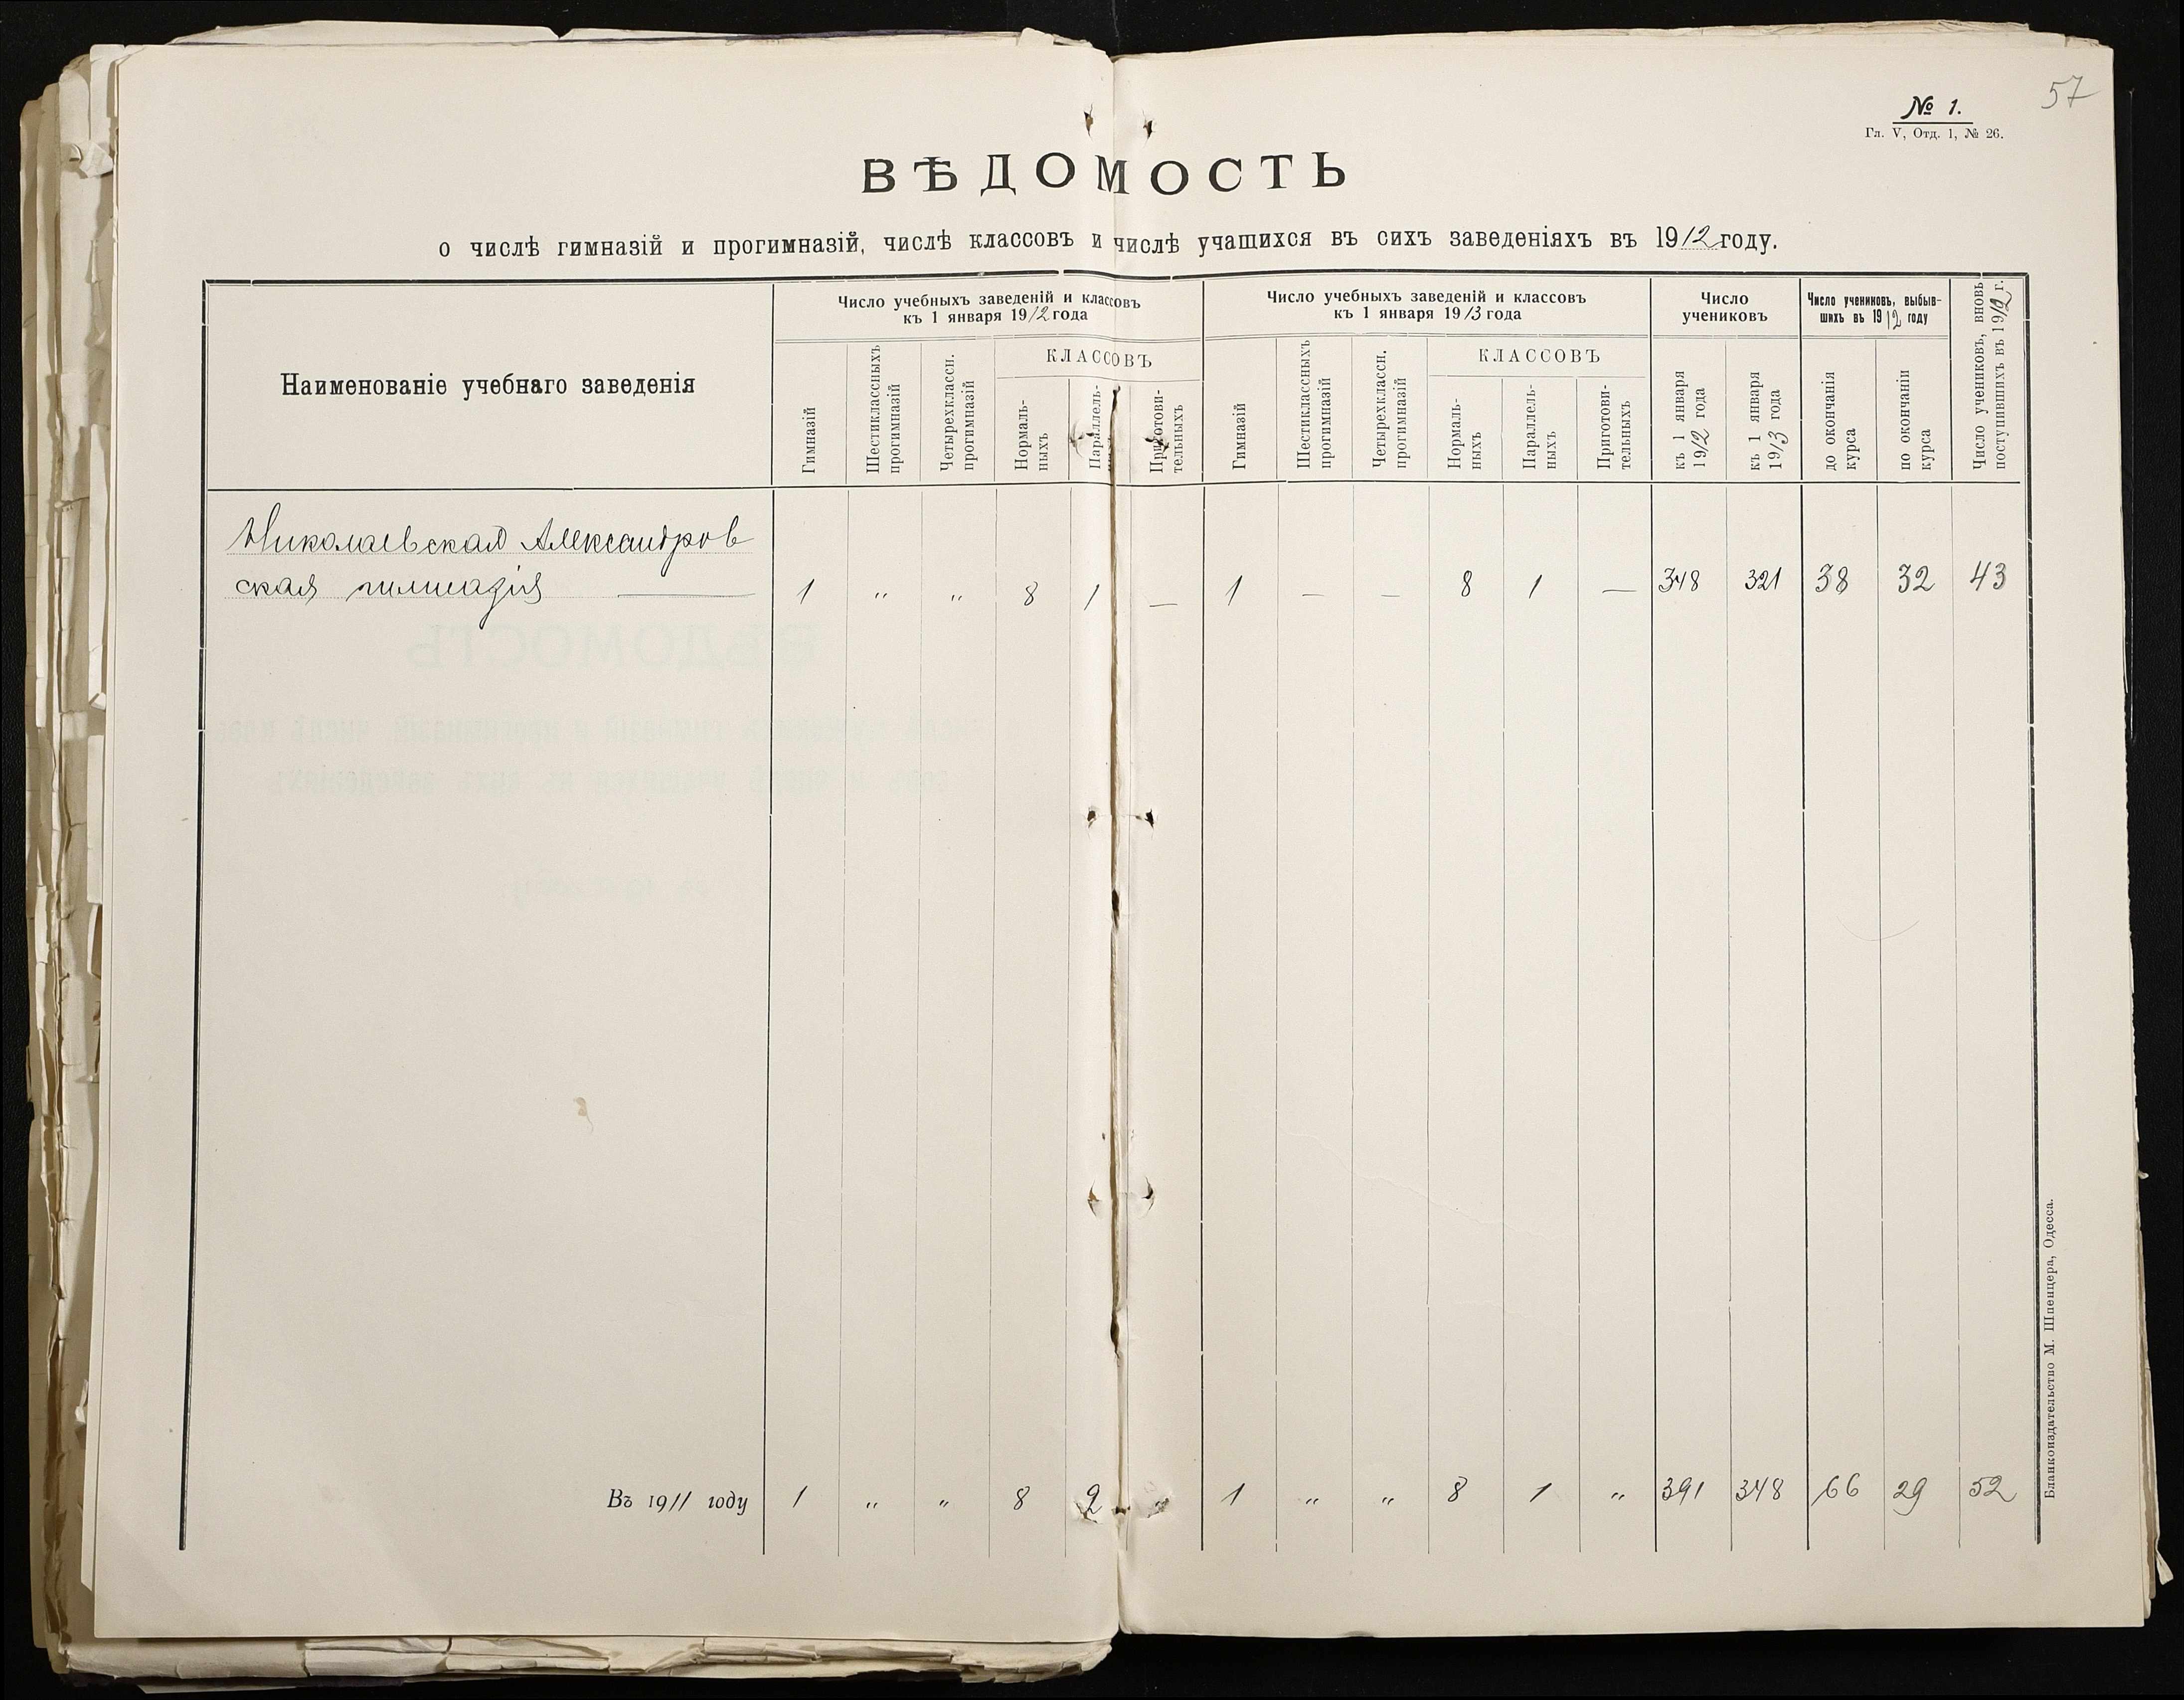 57
№ 1.
Гл. V, Отд. 1, № 26.
ВѢДОМОСТЬ
о числѣ гимназій и прогимназій, числѣ классовъ и числѣ учащихся въ сихъ заведеніяхъ въ 1912 году.
Наименованіе учебнаго заведенія
Число учебныхъ заведеній и классовъ
къ 1 января 1912 года
Гимназій
Шестиклассныхъ
прогимназій
Четырехклассн.
прогимназій
КЛАССОВЪ
Нормаль-
ныхъ
Параллель-
Приготови-
тельныхъ
Число учебныхъ заведеній и классовъ
къ 1 января 1913 года
Гимназій
Шестиклассныхъ
прогимназій
Четырехклассн.
прогимназій
КЛАССОВЪ
Нормаль-
ныхъ
Параллель-
ныхъ
Приготови-
тельныхъ
Число
учениковъ
къ 1 января
1912 года
къ 1 января
1913 года
Число учениковъ, выбыв-
шихъ въ 1912 году
до окончанія
курса
по окончаніи
курса
Число учениковъ, вновь
поступившихъ въ 1912 г.
Николаевская Александров
ская гимназія — 1 " " 8 1 — 1 — — 8 1 — 348 321 38 32 43
Въ 1911 году 1 " " 8 2 " 1 " " 8 1 " 391 348 66 29 52
Бланкоиздательство М. Шпенцера, Одесса.